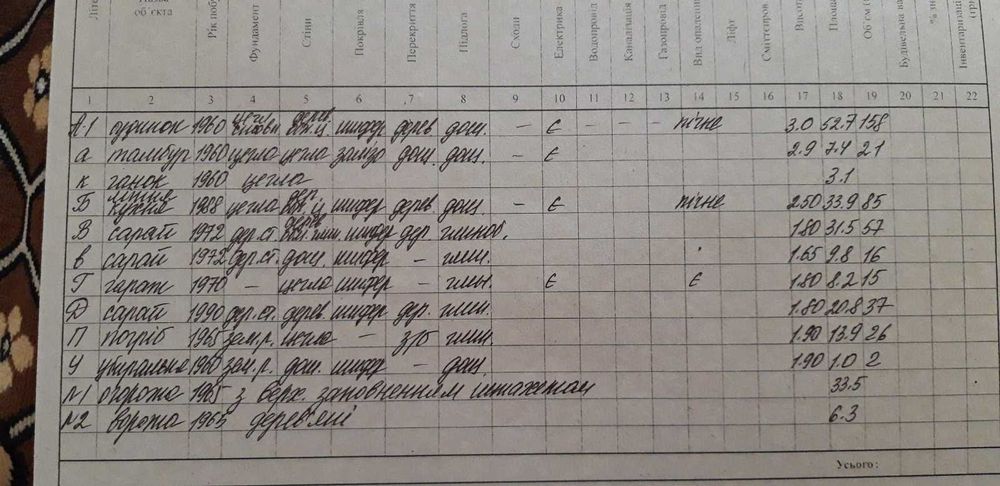 Літе Назва об'єкта Рік побу Фундамент Стіни Покрівля Перекриття Підлога Сходи Електрика Водопровід Каналізація Газопровід Вид опаленн Ліфт Сміттєпров. Висот Площа Об'єм ( Будівельна ва % зн Інвентаризаці (грн
1 2 3 4 5 6 7 8 9 10 11 12 13 14 15 16 17 18 19 20 21 22
А-1 будинок 1960 цегл дерев. шифер дерев дощ. – є – – – пічне 3.0 52.7 158
а тамбур 1960 цегла цегла залізо дощ. дощ. – є 2.9 7.4 21
к ганок 1960 цегла 3.1
Б літня кухня 1988 цегла дер. шифер дерев дощ. – є пічне 2.50 33.9 85
В сарай 1972 дер.ст. дерев шифер дер. глиноб. 1.80 31.5 57
в сарай 1972 дер.ст. дощ. шифер – глин. 1.65 9.8 16
Г гараж 1970 – цегла шифер – глин. є є 1.80 8.2 15
Д сарай 1990 дер.ст. дерев шифер дер. глин. 1.80 20.8 37
П погріб 1965 зал.р. цегла – з/б глин. 1.90 13.9 26
У убиральня 1960 зал.р. дощ. шифер – дощ 1.90 1.0 2
№1 огорожа 1965 з верх. заповненням штахетом 33.5
№2 ворота 1965 дерев'яні 6.3
Усього: